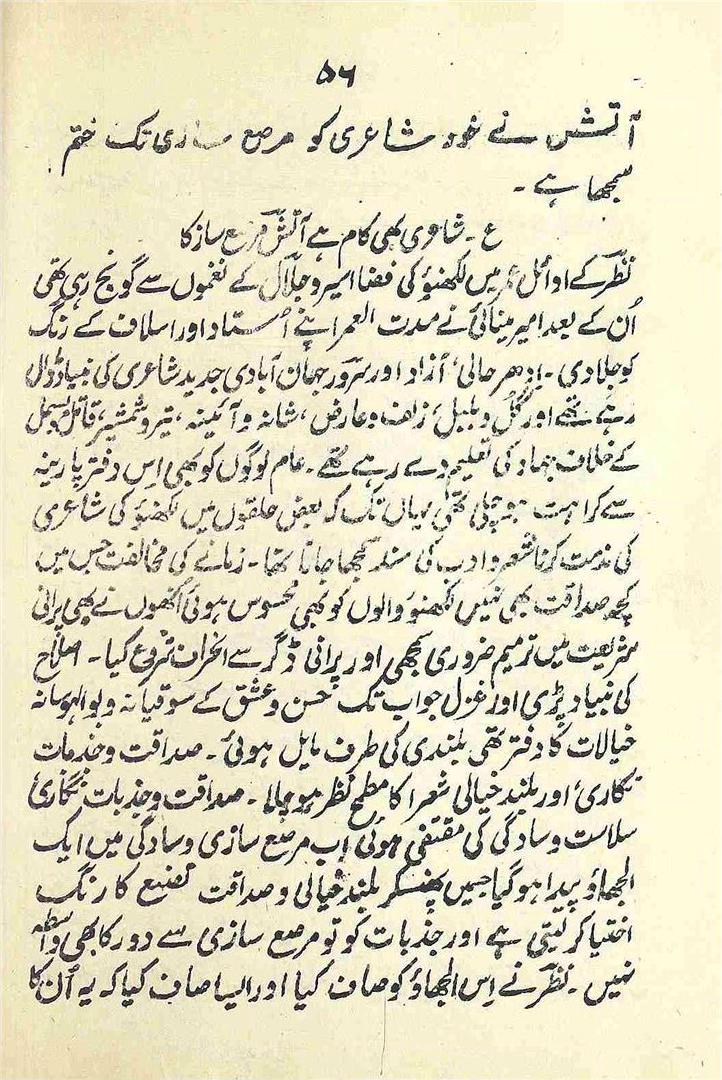 ۵۶
آتش نے خود شاعری کو مرصع سازی تک ختم
سمجھا ہے ۔
ع ۔ شاعری بھی کام ہے آتش مرصع ساز کا
نظر کے اوائل عمر میں لکھنؤ کی فضا اسیر و جلال کے نغموں سے گونج رہی تھی
اُن کے بعد امیر مینائی نے مدت العمر اپنے اُستاد اور اسلاف کے رنگ
کو جلا دی ۔ ادھر حالی، آزاد اور سرور جہان آبادی جدید شاعری کی بنیاد ڈال
رہے تھے اور گل و بلبل، زلف و عارض، شانہ و آئینہ، تیر و شمشیر، قاتل و بسمل
کے خلاف جہاد کی تعلیم دے رہے تھے ۔ عام لوگوں کو بھی اِس دفتر پارینہ
سے کراہت ہو چلی تھی یہاں تک کہ بعض حلقوں میں لکھنؤ کی شاعری
کی مذمت کرنا شعر و ادب کی سند سمجھا جاتا تھا ۔ زمانے کی مخالفت جس میں
کچھ صداقت بھی تھی لکھنؤ والوں کو بھی محسوس ہوئی اُنھوں نے بھی پرانی
شریعت میں ترمیم ضروری سمجھی اور پرانی ڈگر سے انحراف شروع کیا ۔ اصلاح
کی بنیاد پڑی اور غزل جو اب تک حسن و عشق کے سوقیانہ و بوالہوسانہ
خیالات کا دفتر تھی بلندی کی طرف مایل ہوئی ۔ صداقت و جذبات
نگاری اور بلند خیالی شعرا کا مطمح نظر ہو چلا ۔ صداقت و جذبات نگاری
سلاست و سادگی کی مقتضی ہوئی اب مرصع سازی و سادگی میں ایک
الجھاؤ پیدا ہو گیا جسمیں پھنسکر بلند خیالی و صداقت تصنیع کا رنگ
اختیار کر لیتی ہے اور جذبات کو تو مرصع سازی سے دور کا بھی واسطہ
نہیں ۔ نظر نے اِس الجھاؤ کو صاف کیا اور ایسا صاف کیا کہ یہ اُن کا